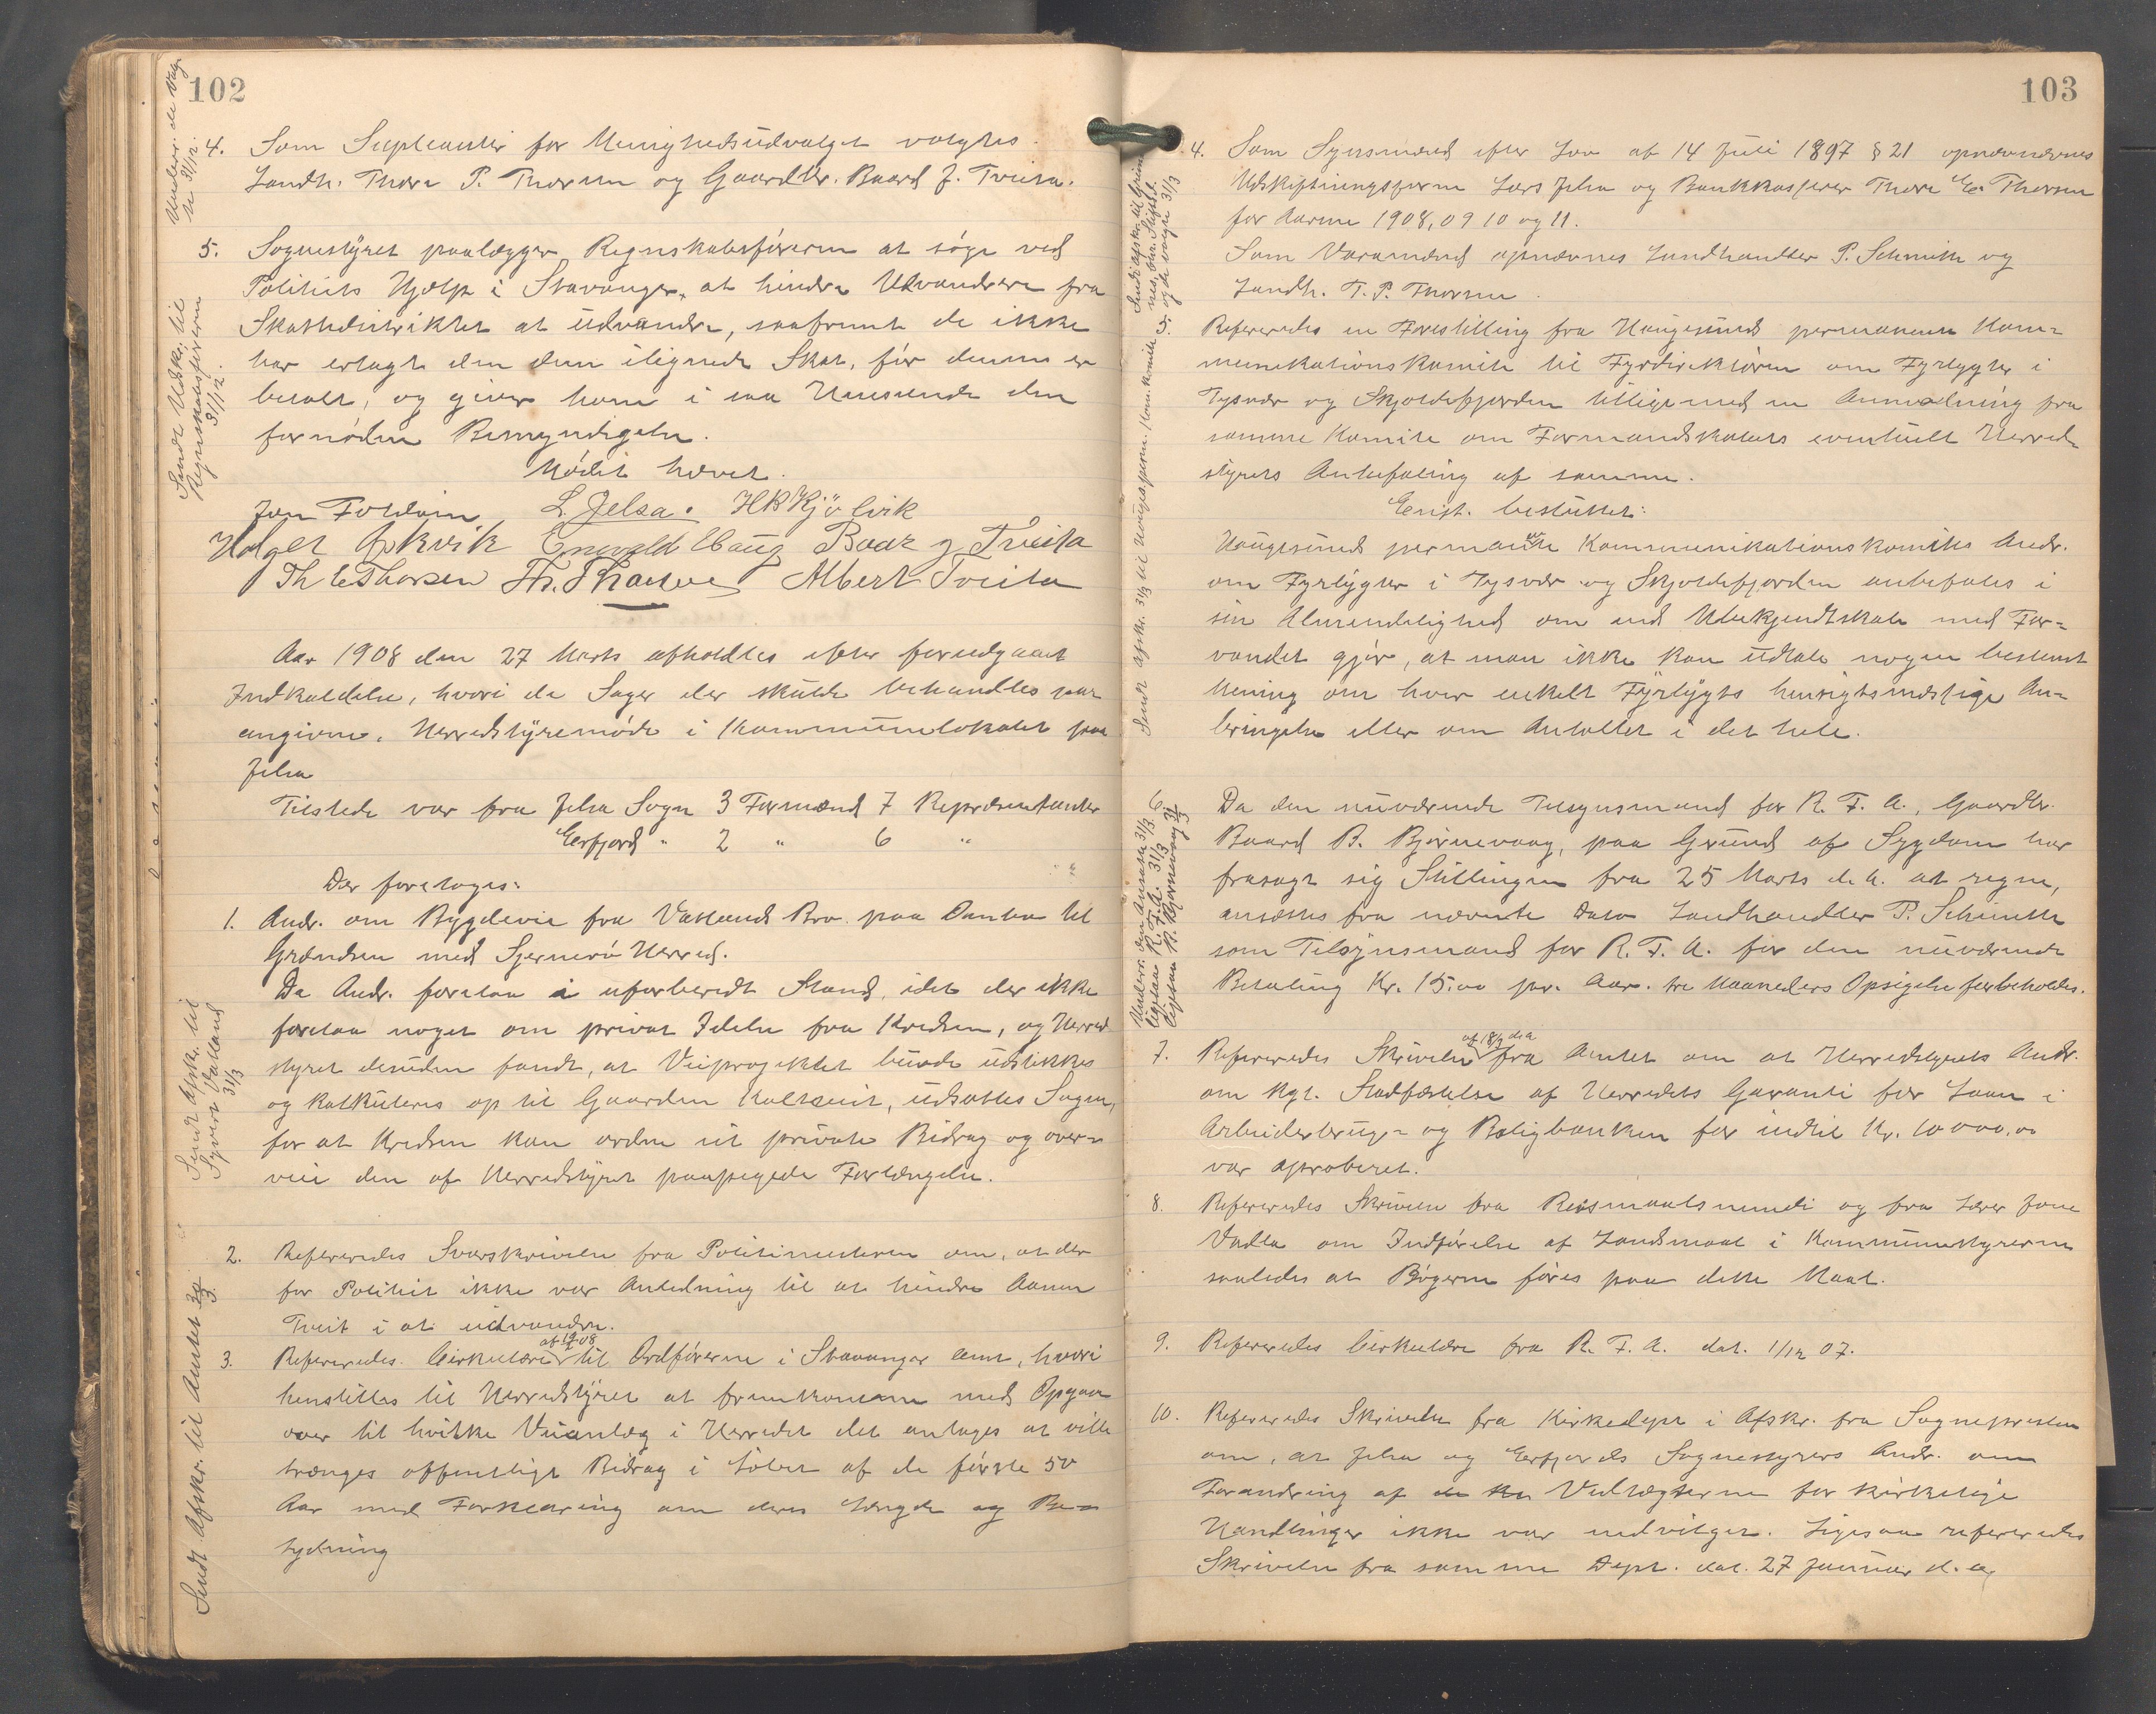 102
4. Som Supleanter for Menighedsudvalget valgtes
Landh. Thore P. Thorsen og Gaardbr. Baard J. Tveita.
Underr. de valgte 31/12.
5. Sognestyret paalægger Regnskabsføreren at søge ved
Politiets Hjælp i Stavanger, at hindre Udvandrere fra
Skattedistriktet at udvandre, saafremt de ikke
har erlagt den dem ilignede Skat, før denne er
betalt, og giver ham i saa Henseende den
fornødne Bemyndigelse.
Sendt Udskr. til
Regnskabsføreren
31/12.
Mødet hævet.
Jon Foldøin L. Jelsa. HKKjølvik
Enevald Haug Baar J Tveita
Th E Thorsen Albert Tveita
Aar 1908 den 27 Marts afholdtes efter forudgaaet
Indkaldelse, hvori de Sager der skulde behandles var
angivne, Herredstyremøde i Kommunelokalet paa
Jelsa
Tilstede var fra Jelsa Sogn 3 Formænd 7 Repræsentanter
Erfjord " 2 " 6 "
Der foretoges:
1. Andr. om Bygdevei fra Vatlands Bro paa Ombo til
Grændsen med Sjernerø Herred.
Da Andr. forelaa i uforberedt Stand, idet der ikke
forelaa noget om privat Ydelse fra Kredsen, og Herred
styret desuden fandt, at Veiprojektet burde udstikkes
og kalkuleres op til Gaarden Kaltveit, udsattes Sagen,
for at Kredsen kan ordne sit private Bidrag og over-
veie den af Herredstyret paapegede Forlængelse.
Sendt Afskr. til
Syvert Vatland
31/3
2. Refereredes Svarskrivelse fra Politimesteren om, at der
for Politiet ikke var Anledning til at hindre Aanen
Tveit i at udvandre.
3. Refereredes Cirkulære til Ordførerne i Stavanger Amt, hvori
henstilles til Herredstyret at fremkomme med Opgave
over til hvilke Veianlæg i Herredet det antages at ville
trænges offentlige Bidrag i Løbet af de første 50
Aar med Forklaring om deres Længde og Be-
tydning
Sendt Afskr. til Amtet
103
4. Som Synsmænd efter Lov af 14 Juli 1897 § 21 opnævnes
Udskiftningsform. Lars Jelsa og Bankkasserer Thore E. Thorsen
for Aarene 1908, 09 10 og 11.
Som Varamænd opnævnes Landhandler P. Schmith og
Landh. T. P. Thorsen.
5. Refereredes en Forestilling fra Haugesunds permanente Kom-
munikationskomite til Fyrdirektøren om Fyrlygter i
Tysvær og Skjoldefjorden tilligemed en Anmodning fra
samme Komite om Formandskabets eventuelt Herred-
styrets Anbefaling af samme.
Enst. besluttet:
Haugesunds permanente Kommunikationskomites Andr.
om Fyrlygter i Tysvær og Skjoldefjorden anbefales i
sin Almendelighed om end Ubekjendtskab med Far-
vandet gjør, at man ikke kan udtale nogen bestemt
Mening om hver enkelt Fyrlygts hensigtsmæssige An-
bringelse eller om Antallet i det hele.
6. Da den nuværende Tilsynsmand for R. F. A., Gaardbr.
Baard B. Bjørnevaag, paa Grund af Sygdom har
frasagt sig Stillingen fra 25 Marts d. A. at regne,
ansættes fra nævnte Dato Landhandler P. Schmith
som Tilsynsmand for R. F. A. for den nuværende
Betaling Kr. 15.00 pr. Aar. tre Maaneders Opsigelse forbeholdes.
7. Refereredes Skrivelse af 18/2 d.a fra Amtet om at Herredstyrets Andr.
om Kgl. Stadfæstelse af Herredets Garanti for Laan i
Arbeiderbrug- og Boligbanken for indtil Kr. 10000,00
var aproberet.
8. Refereredes Skrivelse fra Riksmaalsnemdi og fra Lærer Jone
Vadla om Indførelse af Landsmaal i Kommunestyrerne
saaledes at Bøgerne føres paa dette Maal.
9. Refereredes Cirkulære fra R. F. A. dat. 1/12 07.
10. Refereredes Skrivelse fra Kirkedept i Afskr. fra Sognepresten
om, at Jelsa og Erfjords Sognestyrers Andr. om
Forandring af Vedtægterne for kirkelige
Handlinger ikke var indvilget. Ligesaa refereredes
Skrivelse fra samme Dept. dat. 27 Januar d. a